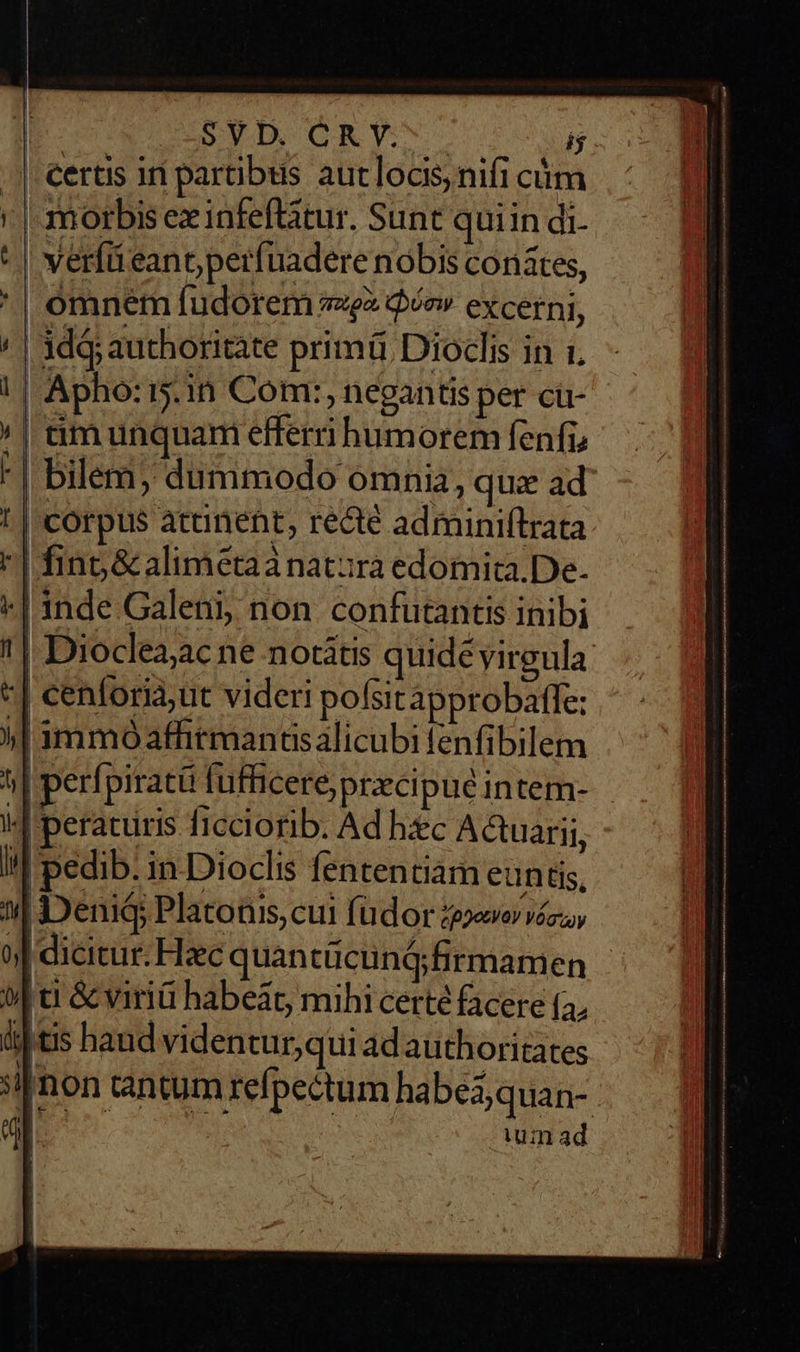 SVD. CRV. 15
certis in partibus aut locis, nisi cùm
morbis ex infestātur. Sunt qui in di-
versū eant, persuadere nobis conātes,
omnem sudorem παρὰ φύσιν excerni,
idq́; authoritate primū Dioclis in 1.
Apho: 15. in Com:, negantis per cu-
tim unquam efferri humorem sensi-
bilem, dummodo omnia, quæ ad
corpus attinent, rectè administrata
sint, & alimēta à natura edomita. De-
inde Galeni, non confutantis inibi
Dioclea, ac ne notātis quidē virgula
censoriâ, ut videri possit approbasse:
immò affirmantis alicubi sensibilem
perspiratū sufficere, præcipuè in tem-
peraturis siccioribꝰ. Ad hæc Actuarii,
pedibꝰ. in Dioclis sententiam euntis,
Deniq́; Platonis, cui sudor dicitur. Hæc quantūcunq́; firmamen
ti & viriū habeāt, mihi certè facere sa-
tis haud videntur, qui ad authoritates
non tantum respectum habeā, quan-
tum ad